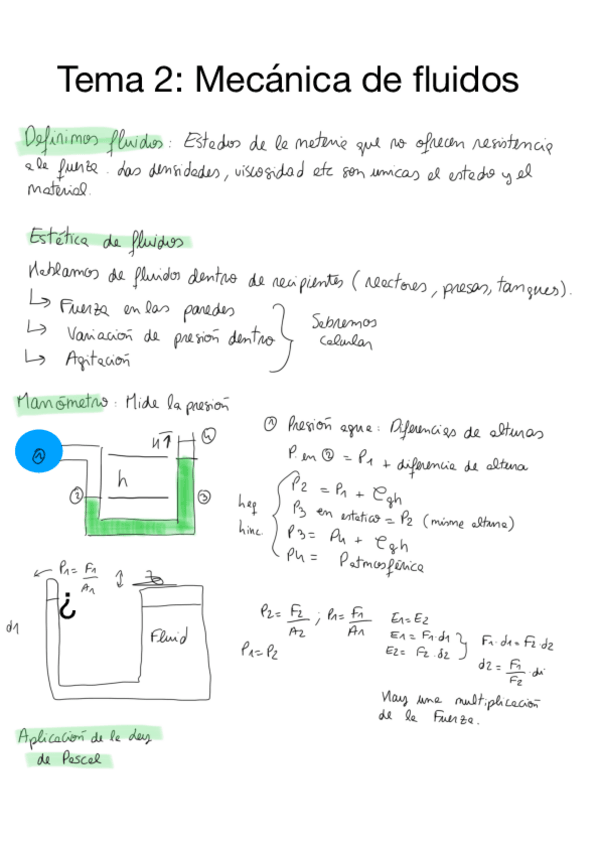 Tema 2: Mecánica de fluidos
Definimos fluidos: Estados de la materia que no ofrecen resistencia
a la fuerza. Las densidades, viscosidad etc son unicas el estado y el
material.
Estética de fluidos
Hablamos de fluidos dentro de recipientes (reactores, presas, tanques).
↳ Fuerza en las paredes
↳ Variación de presión dentro
↳ Agitación
Sabremos
calcular
Manómetro: Mide la presión
① Presión agua: Diferencias de alturas
P. en ② = P1 + diferencia de altura
P2 = P1 + ρgh
P3 en estático = P2 (misma altura)
P3 = P4 + ρgh
P4 = Patmosférica
heq
hinc
①
②
h
③
④
P1 = F1/A1
¿
d1
Fluid
P2 = F2/A2 ; P1 = F1/A1
P1 = P2
E1 = E2
E1 = F1·d1
E2 = F2·d2
F1·d1 = F2·d2
d2 = F1/F2 · d1
Hay una multiplicación
de la Fuerza.
Aplicación de la Ley
de Pascal